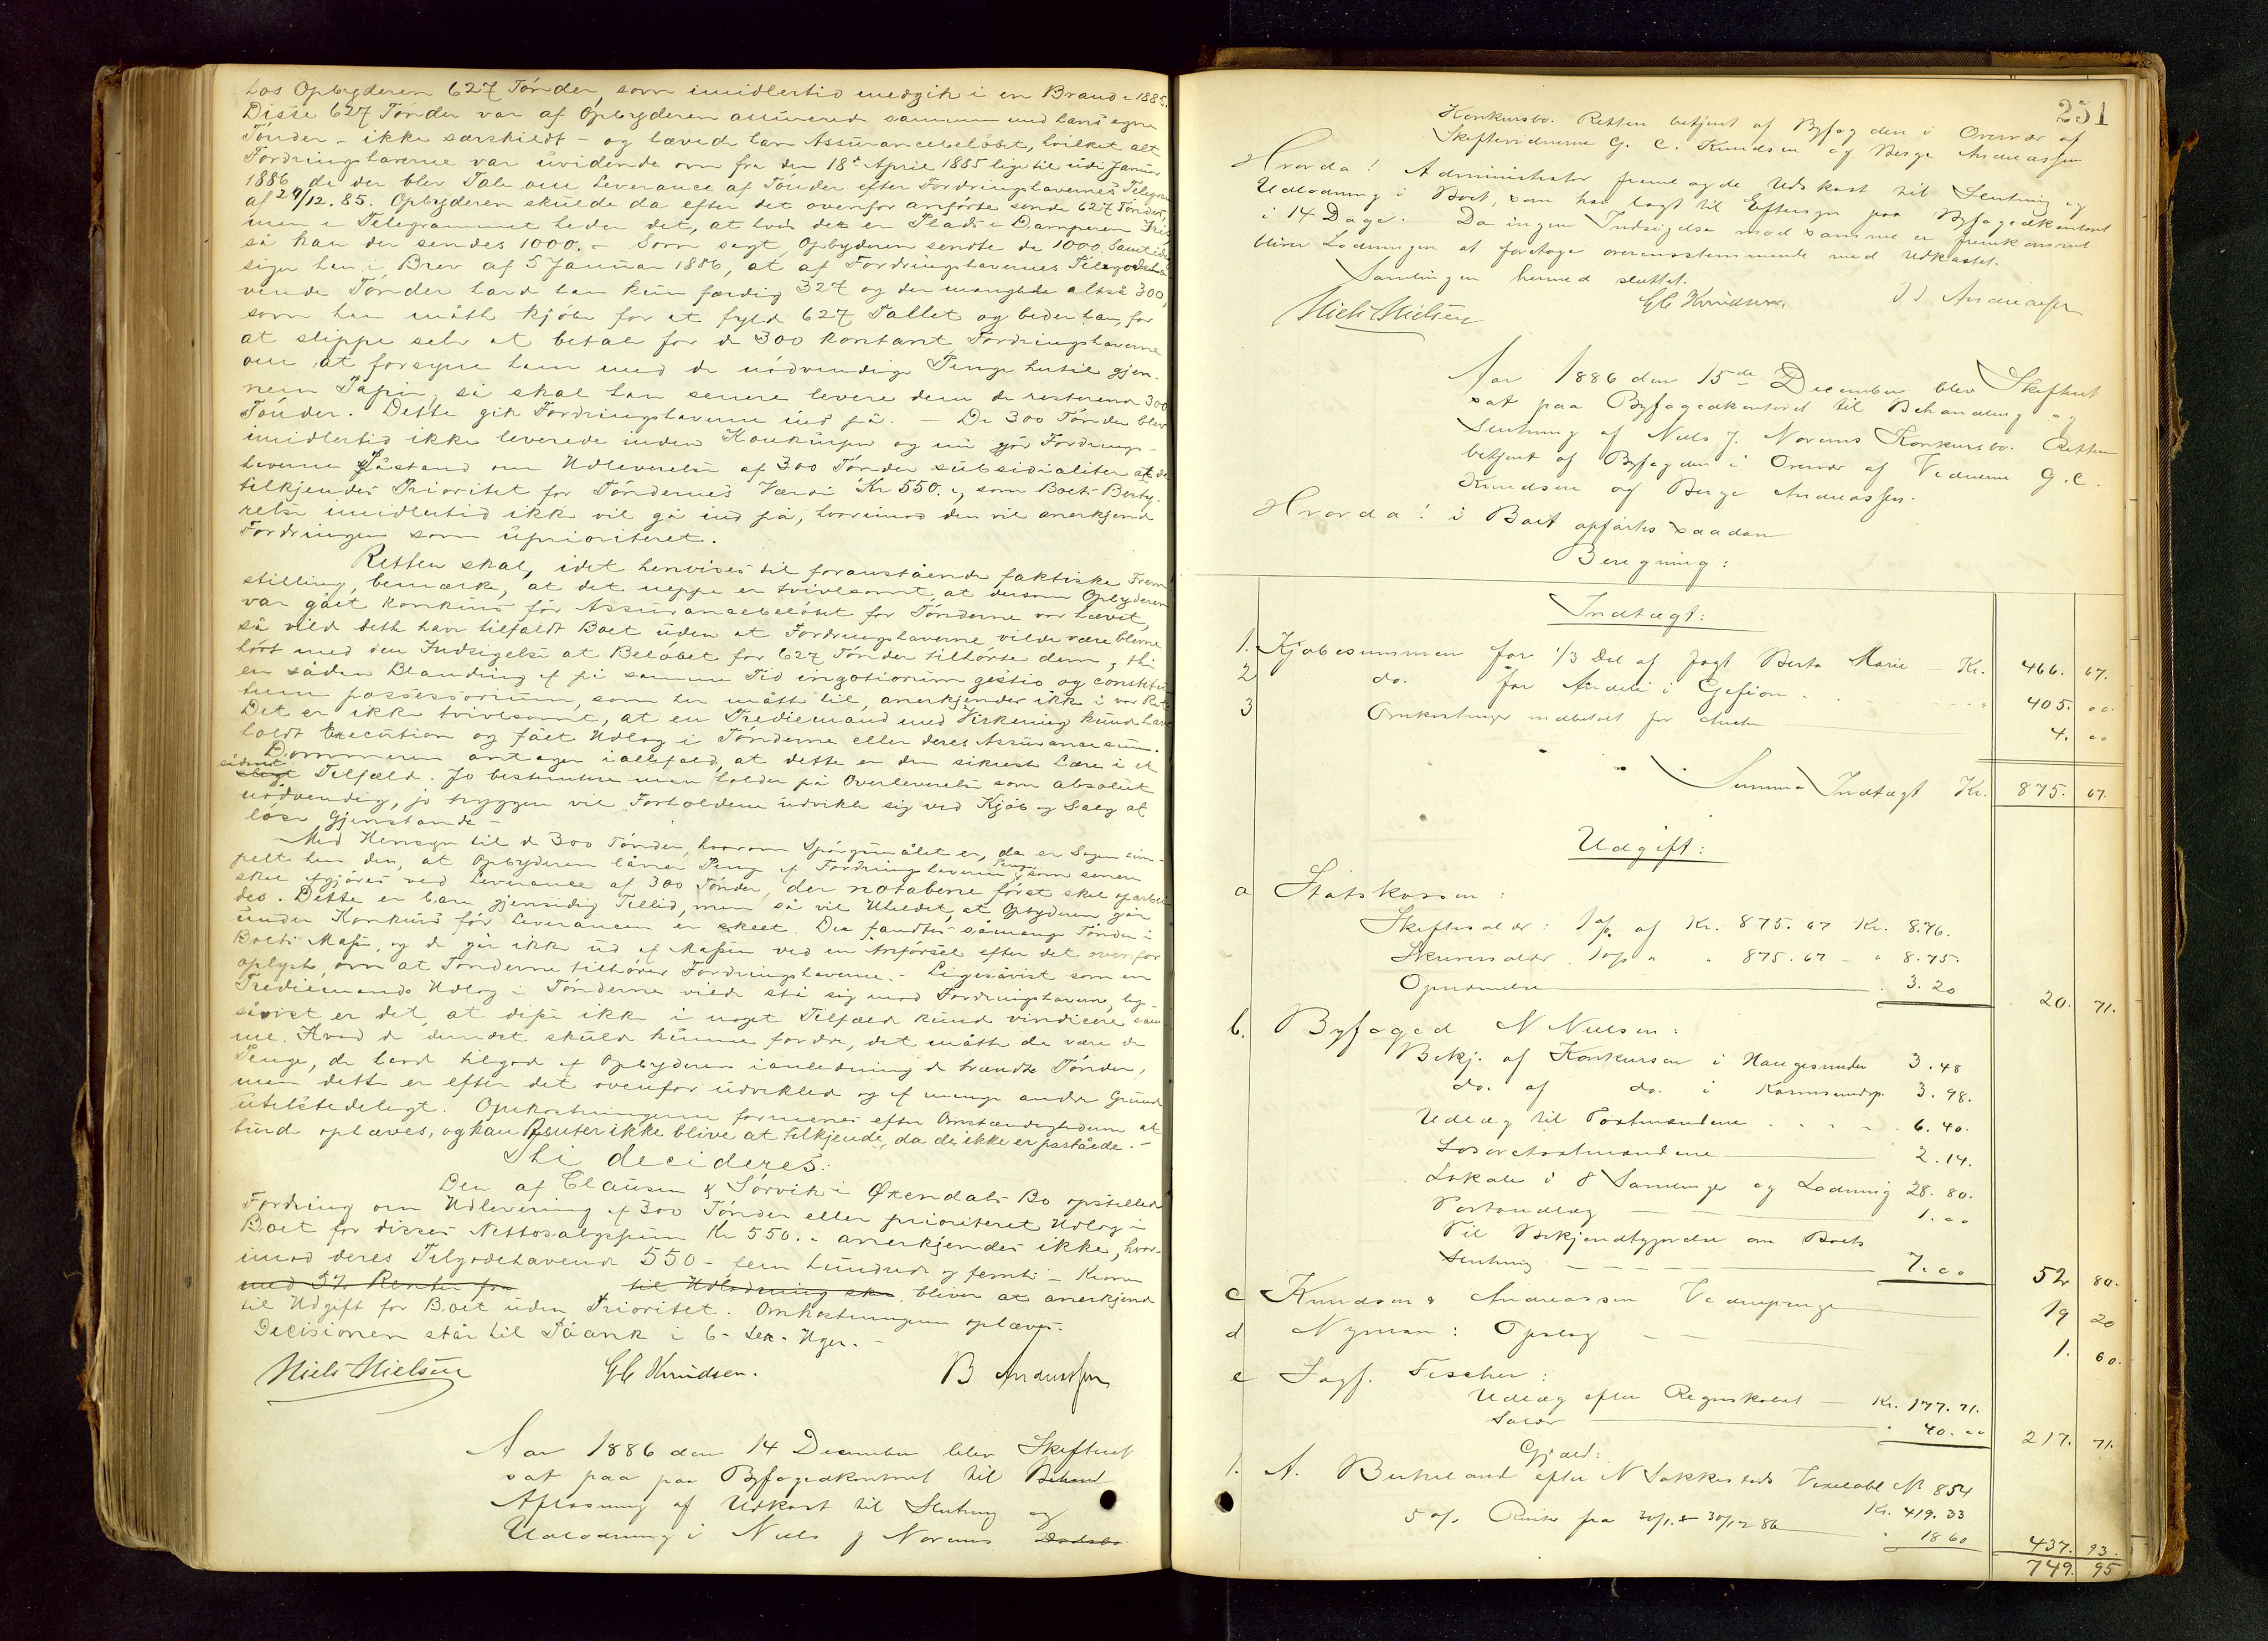 hos Opbyderen 627 Tönder, som imidlertid medgik i en Brand i 1885.
Disse 627 Tönder var af Opbyderen assurerede sammen med hans egne
Tönder - ikke særskildt - og hævede han Assurancebelöbet, hvilket alt
Fordringshaverne var uvidende om fra den 18de April 1885 lige til ud i Januar
1886, da der blev Tale om Leverance af Tönder efter Fordringshavernes Telegram
af 29/12. 85. Opbyderen skulde da efter det ovenfor anförte sende 627 Tönder,
men i Telegrammet heder det, at hvis der er Plads i Damperen Iris,
så kan der sendes 1000. - Som sagt, Opbyderen sendte de 1000. Samtidig
siger han i Brev af 5 Januar 1886, at af Fordringshavernes Tilgodeha-
vende Tönder havde han kun færdig 327 og der manglede altså 300,
som han måtte kjöbe for at fylde 627 Tallet og beder han, for
at slippe selv at betale for de 300 kontant, Fordringshaverne
om at forsyne ham med de nödvendige Penge hertil gjen-
nem Papir, så skal han senere levere dem de resterende 300
Tönder. Dette gik Fordringshaverne ind på. - De 300 Tönder blev
imidlertid ikke leverede inden Konkursen og nu gjör Fordrings-
haverne Påstand om Udleverelse af 300 Tönder subsidialiter at de
tilkjendes Prioritet for Töndernes Værdi Kr 550. -, som Boets Besty-
relse imidlertid ikke vil gå ind på, hvorimod den vil anerkjende
Fordringen som uprioriteret.
Retten skal, idet henvises til foranstående faktiske Frem-
stilling, bemærke, at det neppe er tvivlsomt, at dersom Opbyderen
var gået konkurs för Assurancebelöbet for Tönderne var hævet,
så vilde dette have tilfaldt Boet uden at Fordringshaverne vilde være blevne
hört med den Indsigelse at Belöbet for 627 Tönder tilhörte dem, thi
en sådan Blanding af på samme Tid negotiorum gestio og constitu-
tum possessorium, som her måtte til, anerkjendes ikke i vor Ret
Det er ikke tvivlsomt, at en Trediemand med Virkning kunde have
holdt Execution og fået Udlæg i Tönderne eller deres Assurancesum.
Dommeren antager iallefald, at dette er den sikreste Lære i et
sådant
sligt Tilfælde. Jo bestemtere man holder på Overleverelse som absolut
nödvendig, jo tryggere vil Forholdene udvikle sig ved Kjöb og Salg af
löse Gjenstande -
Med Hensyn til de 300 Tönder, hvorom Spörgsmålet er, da er Sagen sim-
pelt hen den, at Opbyderen låner Penge af Fordringshaverne, som senere
skal afgjöres ved Leverance af 300 Tönder, der notabene först skal oparbei-
des. Dette er bare gjensidig Tillid, men så vil Uheldet, at Opbyderen går
under Konkurs för Leverancen er skeet. Der fandtes såmange Tönder i
Boets Masse, og de går ikke ud af Massen ved en Anförsel efter det ovenfor
oplyste, om at Tönderne tilhörer Fordringshaverne. - Ligesåvist som en
Trediemands Udlæg i Tönderne vilde stå sig mod Fordringshaverne, lige-
såvist er det, at disse ikke i noget Tilfælde kunde vindicere sam-
me. Hvad de derimod skulde kunne fordre, det måtte da være de
Penge, de havde tilgode af Opbyderen i anledning de brændte Tönder,
men dette er efter det ovenfor udviklede og af mange andre Grunde
utilstedeligt. Omkostningerne formenes efter Omstændighederne at
burde ophæves, og kan Renter ikke blive at tilkjende, da de ikke er påståede. -
Thi decideres:
Den af Clausen & Sörvik i Øxendals Bo opstillede
Fordring om Udlevering af 300 Tönder eller prioriteret Udlæg i
Boet for disses Nettosalgssum Kr 550. - anerkjendes ikke, hvor-
imod deres Tilgodehavende 550 - fem hundrede og femti - Kroner
med 5% Renter fra til Udlodning sker bliver at anerkjende
til Udgift for Boet uden Prioritet. Omkostningerne ophæves.
Decisionen står til Påank i 6 - sex - Uger. -
Niels Nielsen GC Knudsen. B Andreassen
Aar 1886 den 14 December blev Skifteret
sat paa paa Byfogedkontoret til Behand
Aflæsning af Udkast til Slutning og
Udlodning i Niels J Norems Dødsbo
251
Konkursbo. Retten betjent af Byfogden i Overvær af
Skiftevidnerne G. C. Knudsen og Berge Andreassen
Hvorda! Administrator fremlagde Udkast til Slutning og
Udlodning i Boet, som har lagt til Eftersyn paa Byfogedkontoret
i 14 Dage. Da ingen Indsigelse mod samme er fremkommet
bliver Lodningen at foretage overensstemmende med Udkastet.
Samlingen hermed sluttet.
Niels Nielsen GC Knudsen Andreassen
Aar 1886 den 15de December blev Skifteret
sat paa Byfogedkontoret til Behandling og
Slutning af Niels J. Norems Konkursbo. Retten
betjent af Byfogden i Overvær af Vidnerne G. C.
Knudsen og Berge Andreassen.
Hvorda! i Boet opførtes saadan
Beregning:
Indtægt:
1. Kjøbesummen for 1/3 Del af Jagt Berta Marie - Kr. 466. 67.
2 do. for Andele i Gefion 405. 00
3 Omkostninger indbetalt for 4. 00
Summa Indtægt Kr. 875. 67.
Udgift:
a Statskassen:
Skiftesalær: 1 % af Kr. 875. 67 Kr. 8.76.
Skriversalær. 1 % " " 875. 67 - " 8.75.
Opnævnelse 3. 20 20. 71.
b. Byfoged N Nielsen:
Bekj. af Konkursen i Haugesunder 3. 48
do. af do. i Karmsundsp. 3. 98.
Udlæg til Postmændene 6. 40.
2. 14.
Lokale i 8 Samlinger og Lodning 28. 80.
Portoudlæg 1. 00
Til Bekjendtgjørelse om Boets
Slutning 7. 00 52 80.
c Knudsen & Andreassen Vidnepenge 19 20
d Nyman: Opslag 1. 60.
e Sagf. Fischer:
Udlæg efter Regnskabet - Kr. 177. 71.
Salær " 40. 00 217. 71.
Gjæld:
1. A. Birkeland efter N Sakkestads Vexelobl. No 854
Kr. 419. 33
5 % Rente fra 30/1 - 30/12 86 " 18 60 437. 93.
749. 95